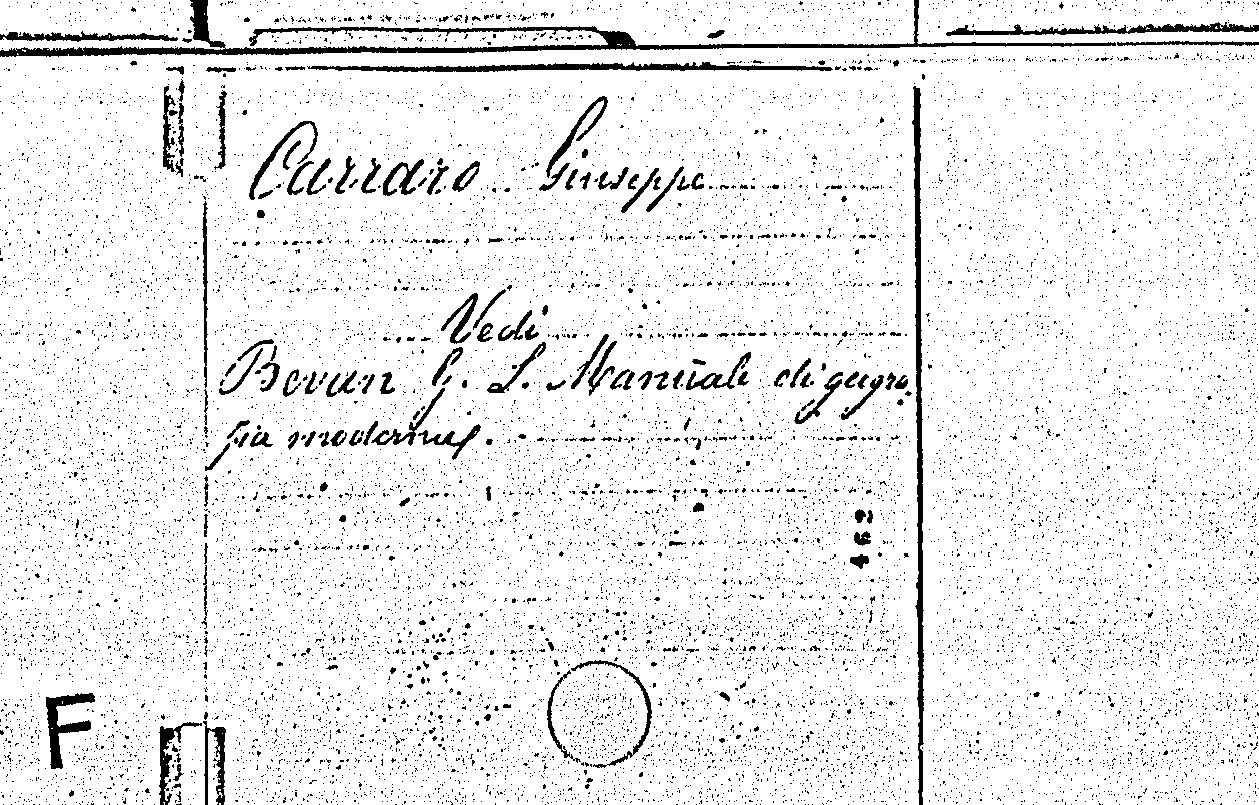 Carraro Giuseppe
Vedi
Bevan G. L. Manuale di geogra
fia moderna.
462
F